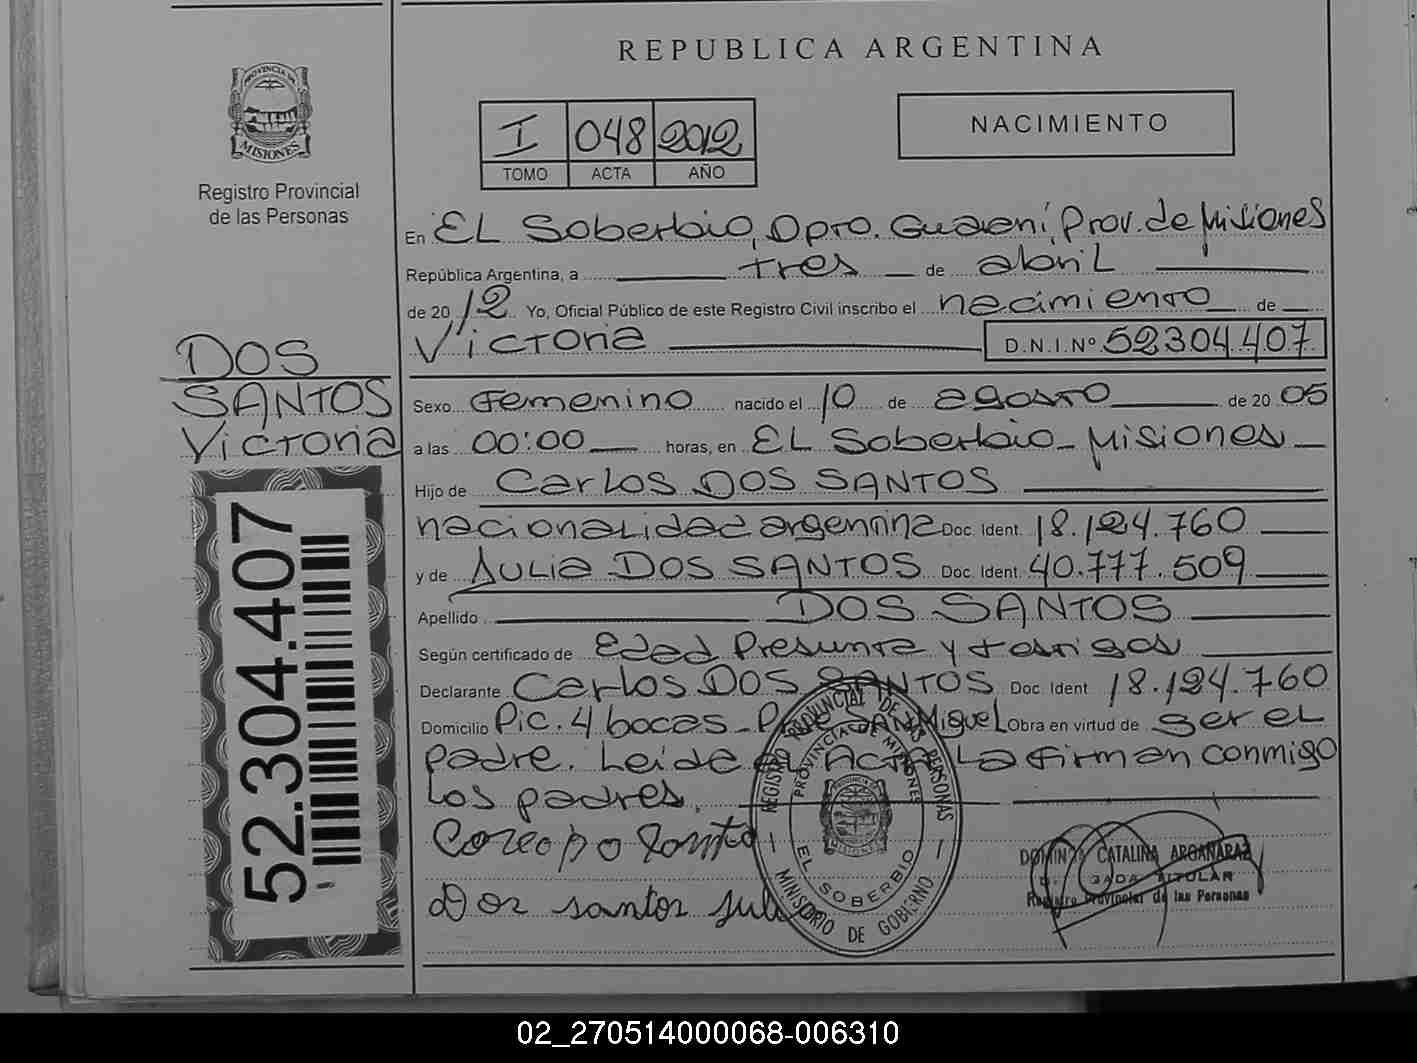 REPUBLICA ARGENTINA
PROVINCIA DE
MISIONES
Registro Provincial
de las Personas
I 048 2012
TOMO ACTA AÑO
NACIMIENTO
En EL Soberbio, Dpto. Guaraní, Prov. de Misiones
República Argentina, a tres de abril
de 2012 Yo, Oficial Público de este Registro Civil inscribo el nacimiento de
Victoria D.N.I.Nº 52304.407
DOS
SANTOS
Victoria
Sexo Femenino nacido el 10 de agosto de 2005
a las 00:00 horas, en EL Soberbio - Misiones
Hijo de Carlos DOS SANTOS
nacionalidad argentina Doc. Ident. 18.124.760
y de Julia DOS SANTOS Doc. Ident. 40.777.509
Apellido DOS SANTOS
Según certificado de Edad Presunta y testigos
Declarante Carlos DOS SANTOS Doc. Ident. 18.124.760
Domicilio Pic. 4 bocas - San Miguel Obra en virtud de ser el
padre. Leída el Acta La firman conmigo
los padres.
52.304.407
Dos santos Juli
REGISTRO PROVINCIAL DE LAS PERSONAS
PROVINCIA DE MISIONES
EL SOBERBIO
MINISTERIO DE GOBIERNO
CATALINA ARGAÑARAZ
TITULAR
Registro Provincial de las Personas
02_270514000068-006310